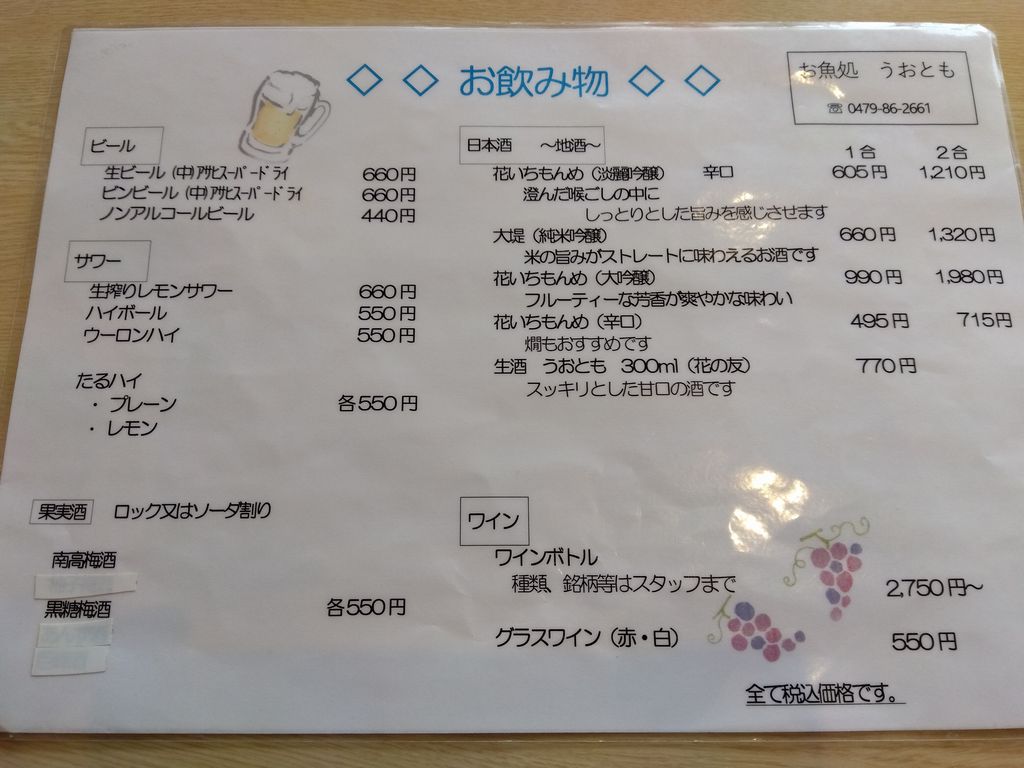 ◇ ◇ お飲み物 ◇ ◇
お魚処 うおとも
☏ 0479-86-2661
ビール
生ビール (中) ｱｻﾋｽｰﾊﾟｰﾄﾞﾗｲ 660円
ビンビール (中) ｱｻﾋｽｰﾊﾟｰﾄﾞﾗｲ 660円
ノンアルコールビール 440円
サワー
生搾りレモンサワー 660円
ハイボール 550円
ウーロンハイ 550円
たるハイ
・ プレーン 各550円
・ レモン
果実酒 ロック又はソーダ割り
南高梅酒
黒糖梅酒 各550円
日本酒 ～地酒～
1合 2合
花いちもんめ (淡麗吟醸) 辛口 605円 1,210円
澄んだ喉ごしの中に
しっとりとした旨みを感じさせます
大堤 (純米吟醸) 660円 1,320円
米の旨みがストレートに味わえるお酒です
花いちもんめ (大吟醸) 990円 1,980円
フルーティーな芳香が爽やかな味わい
花いちもんめ (辛口) 495円 715円
燗もおすすめです
生酒 うおとも 300ml (花の友) 770円
スッキリとした甘口の酒です
ワイン
ワインボトル
種類、銘柄等はスタッフまで 2,750円～
グラスワイン (赤・白) 550円
全て税込価格です。